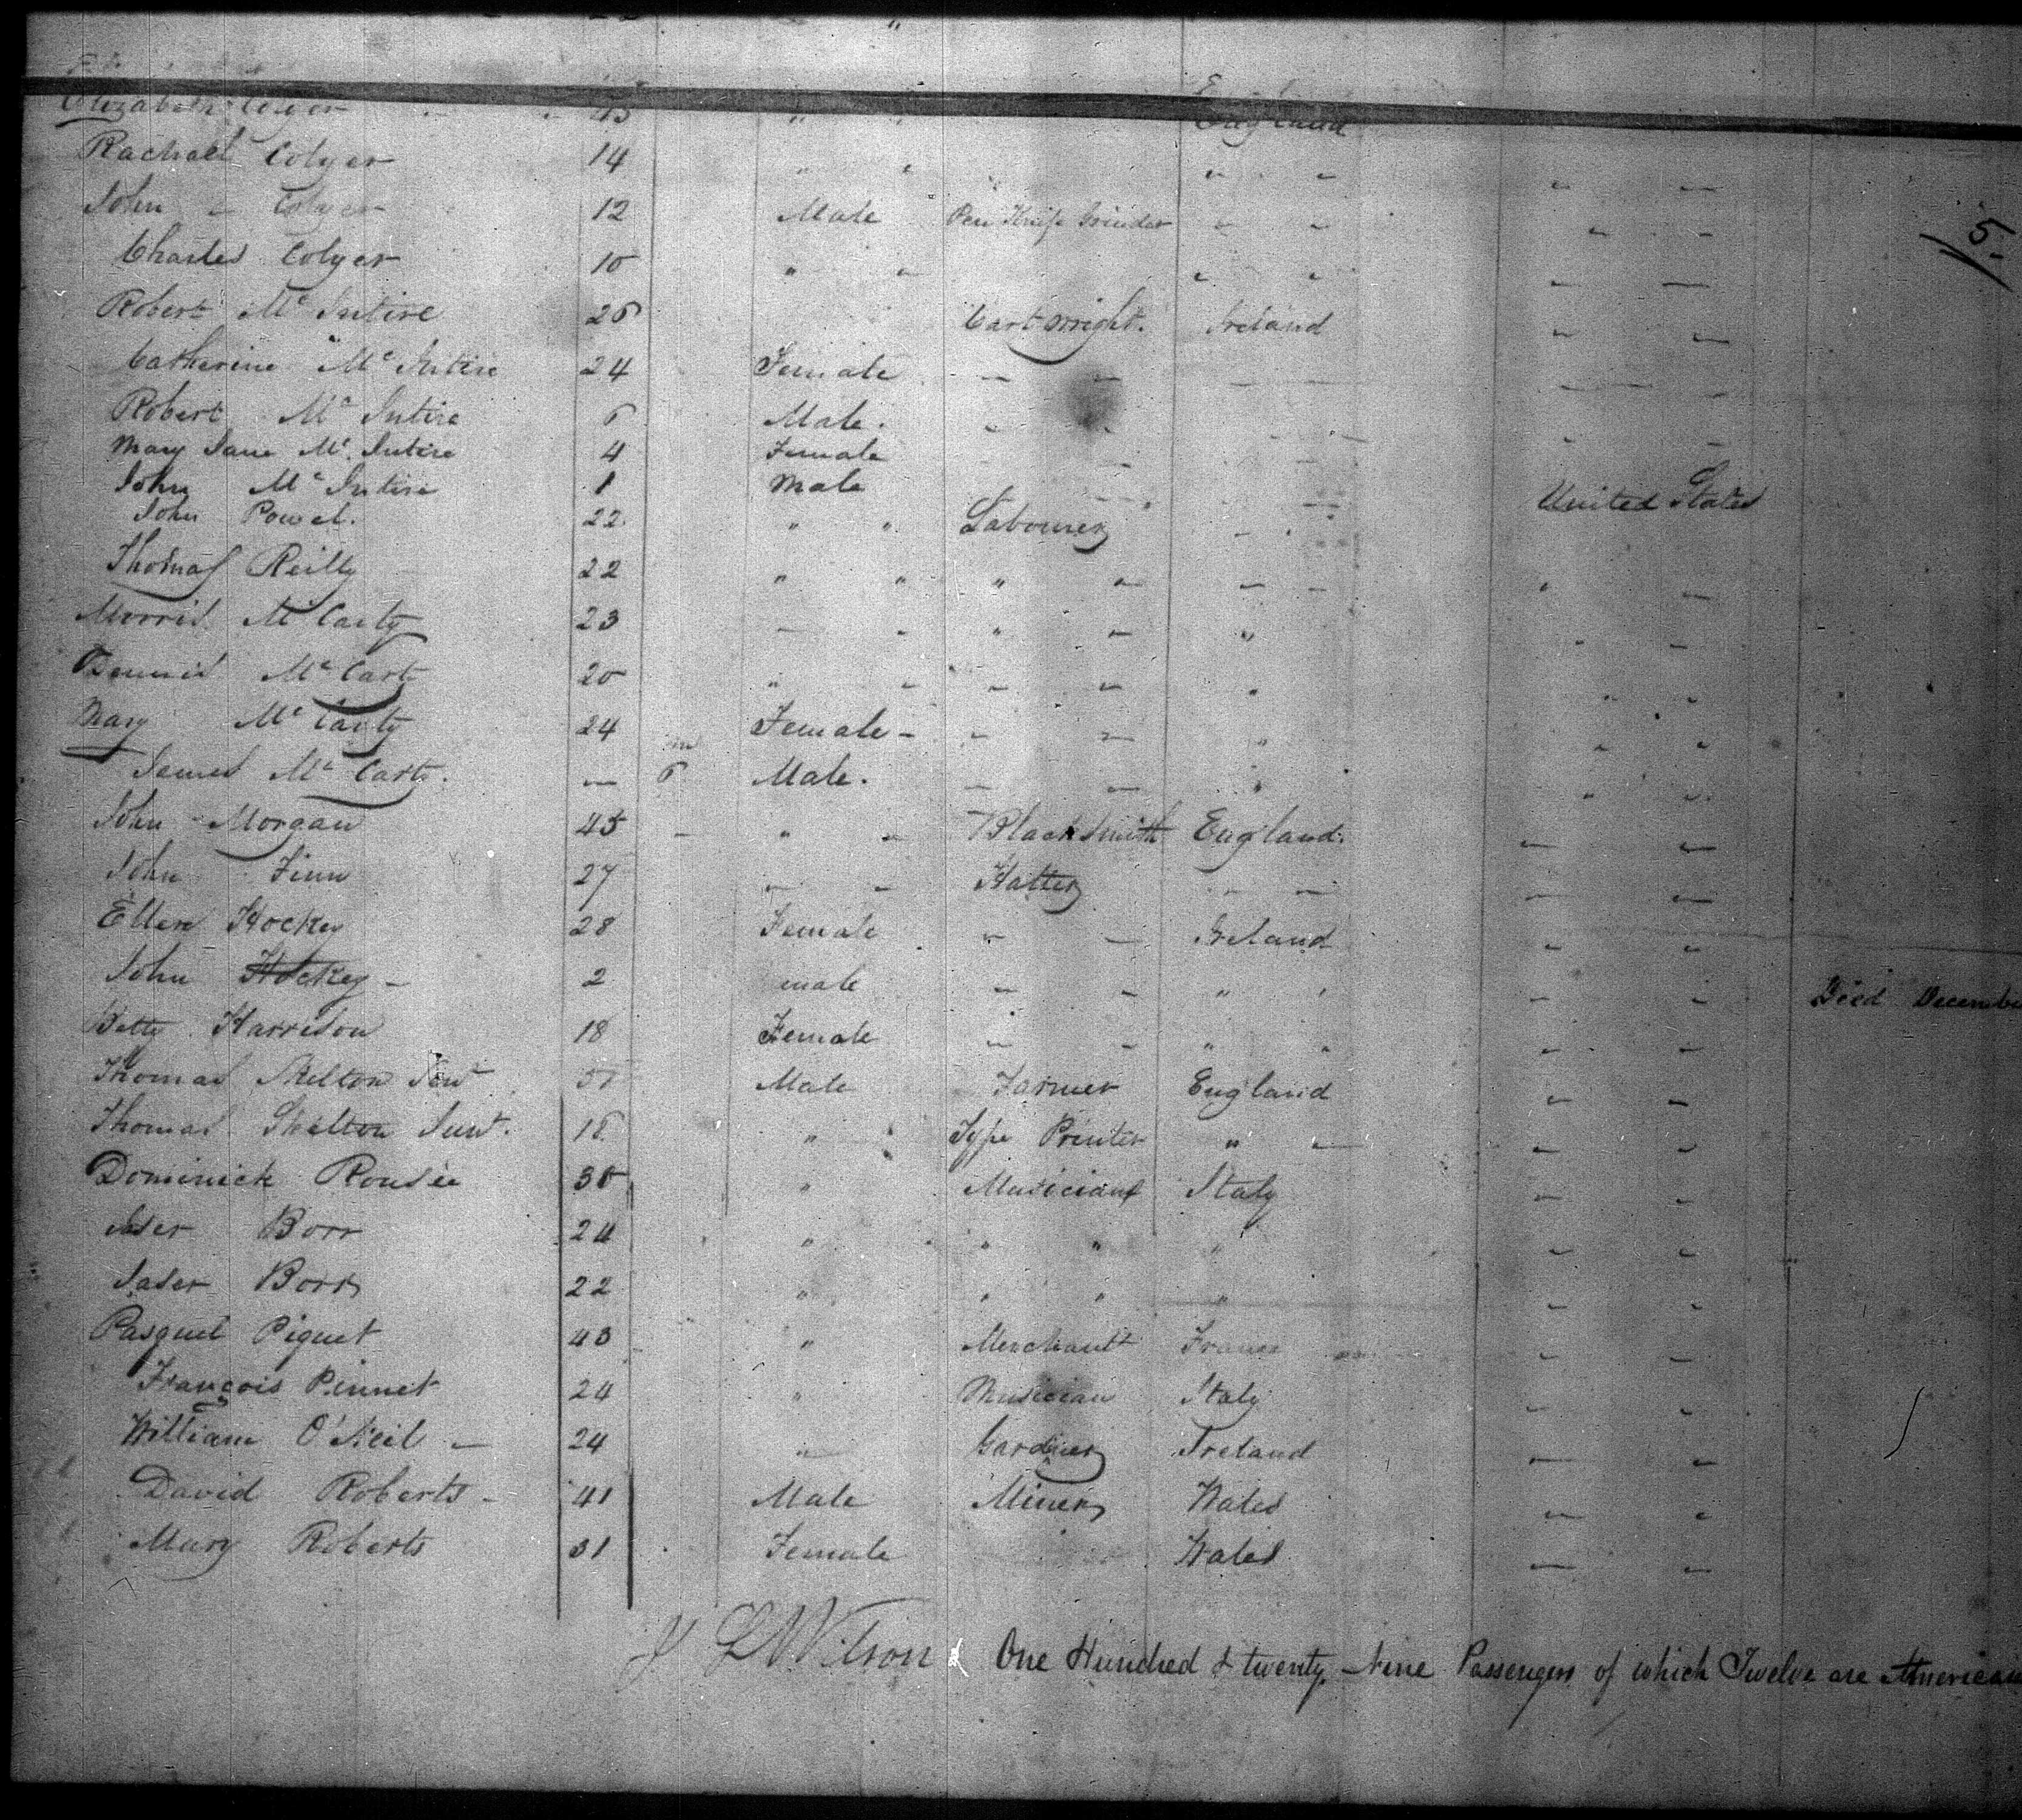 Elizabeth Colyer 45 " " England
Rachael Colyer 14 " " " "
John Colyer 12 Male Pen Knife Grinder " "
Charles Colyer 10 " " " "
5
Robert Mc Intire 26 Cartwright. Ireland
Catherine Mc Intire 24 Female
Robert Mc Intire 6 Male.
Mary Jane Mc Intire 4 Female
John Mc Intire 1 Male United States
John Powel. 22 " " Labourer
Thomas Reilly 22 " " " "
Morris Mc Carty 23 " " " " "
Dennis Mc Carty 20 " " " " "
Mary Mc Carty 24 Female - "
James Mc Carty. - 6 Male. "
John Morgan 45 - " " Black Smith England.
John Finn 27 " " Hatter
Ellen Hockey 28 Female Ireland
John Hockey - 2 male " " Died Decembe
Betty Harrison 18 Female " "
Thomas Skelton Sen Male Farmer England
Thomas Skelton Jun. 18 " Type Printer " "
Dominick 30 " Musician Italy
Borr 24 " " " "
Borr 22 " " " "
Pasquel Piquet 43 " Merchant France
François Pinnet 24 " Musician Italy
William O'Neil - 24 " Gardiner Ireland
David Roberts - 41 Male Miner Wales
Mary Roberts 31 Female Wales
J L Wilson One Hundred & twenty-Nine Passengers of which Twelve are American